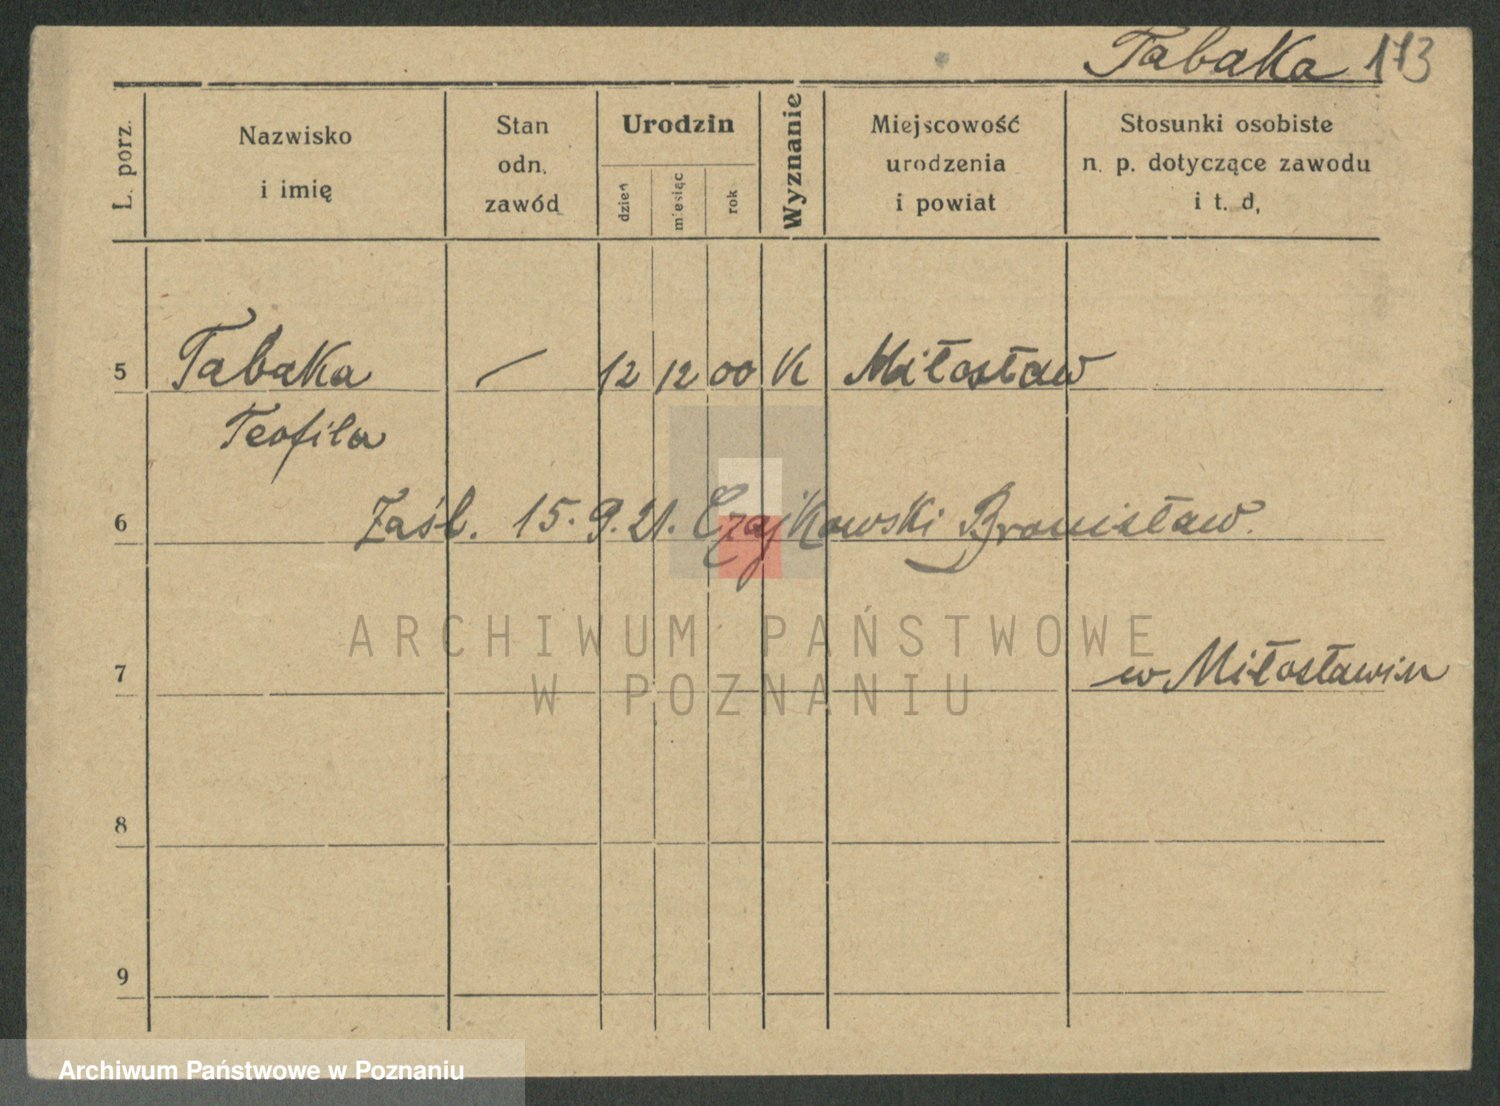 Tabaka 173
L. porz.
Nazwisko
i imię
Stan
odn.
zawód
Urodzin
dzień
miesiąc
rok
Wyznanie
Miejscowość
urodzenia
i powiat
Stosunki osobiste
n. p. dotyczące zawodu
i t. d,
5 Tabaka — 12 12 00 K Miłosław
Teofila
6 Zaśl. 15.9.21. Czajkowski Bronisław.
7 w Miłosławiu
8
9
ARCHIWUM PAŃSTWOWE
W POZNANIU
Archiwum Państwowe w Poznaniu